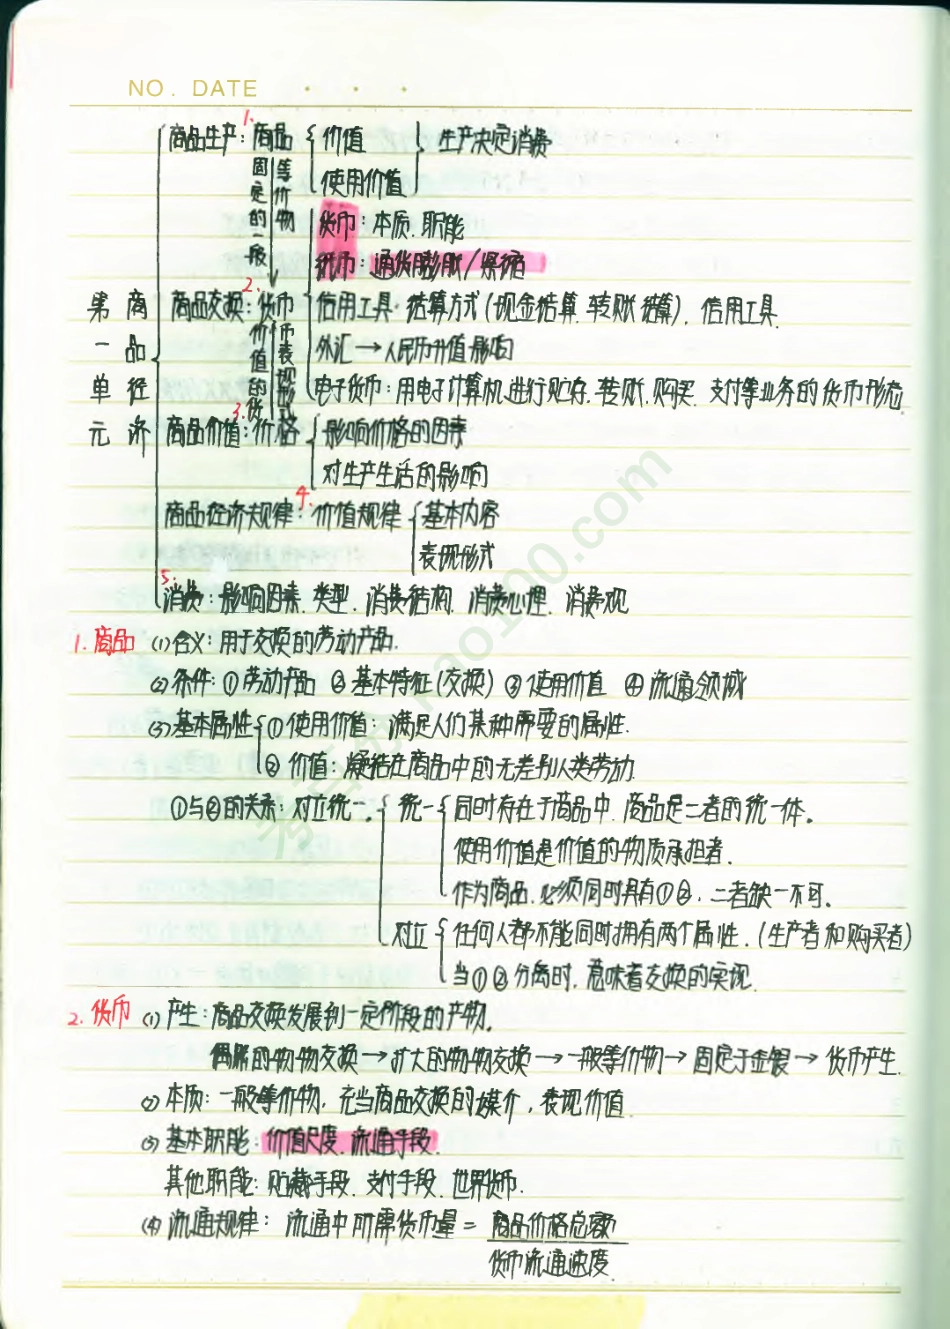 NO. DATE
1.
商品生产：商品 价值 生产决定消费
使用价值
固定的一般等价物
货币：本质、职能
纸币：通货膨胀/紧缩
2.
第一单元 商品经济
商品交换：货币 信用工具·结算方式(现金结算、转账结算)、信用工具
外汇→人民币升值影响
价值的货币表现形式
电子货币：用电子计算机进行贮存、转账、购买、支付等业务的货币形态
3.
商品价值：价格 影响价格的因素
对生产生活的影响
4.
商品经济规律：价值规律 基本内容
表现形式
5.
消费：影响因素、类型、消费结构、消费心理、消费观
1.商品 (1)含义：用于交换的劳动产品.
(2)条件：①劳动产品 ②基本特征(交换) ③使用价值 ④流通领域
(3)基本属性 ①使用价值：满足人们某种需要的属性.
②价值：凝结在商品中的无差别人类劳动.
①与②的关系：对立统一。 统一 同时存在于商品中，商品是二者的统一体。
使用价值是价值的物质承担者.
作为商品，必须同时具有①②，二者缺一不可。
对立 任何人都不能同时拥有两个属性.(生产者和购买者)
当①②分离时，意味着交换的实现.
2.货币 (1)产生：商品交换发展到一定阶段的产物。
偶然的物物交换→扩大的物物交换→一般等价物→固定于金银→货币产生.
(2)本质：一般等价物，充当商品交换的媒介，表现价值.
(3)基本职能：价值尺度、流通手段.
其他职能：贮藏手段、支付手段、世界货币.
(4)流通规律：流通中所需货币量＝商品价格总额
货币流通速度
考百分 kao100.com